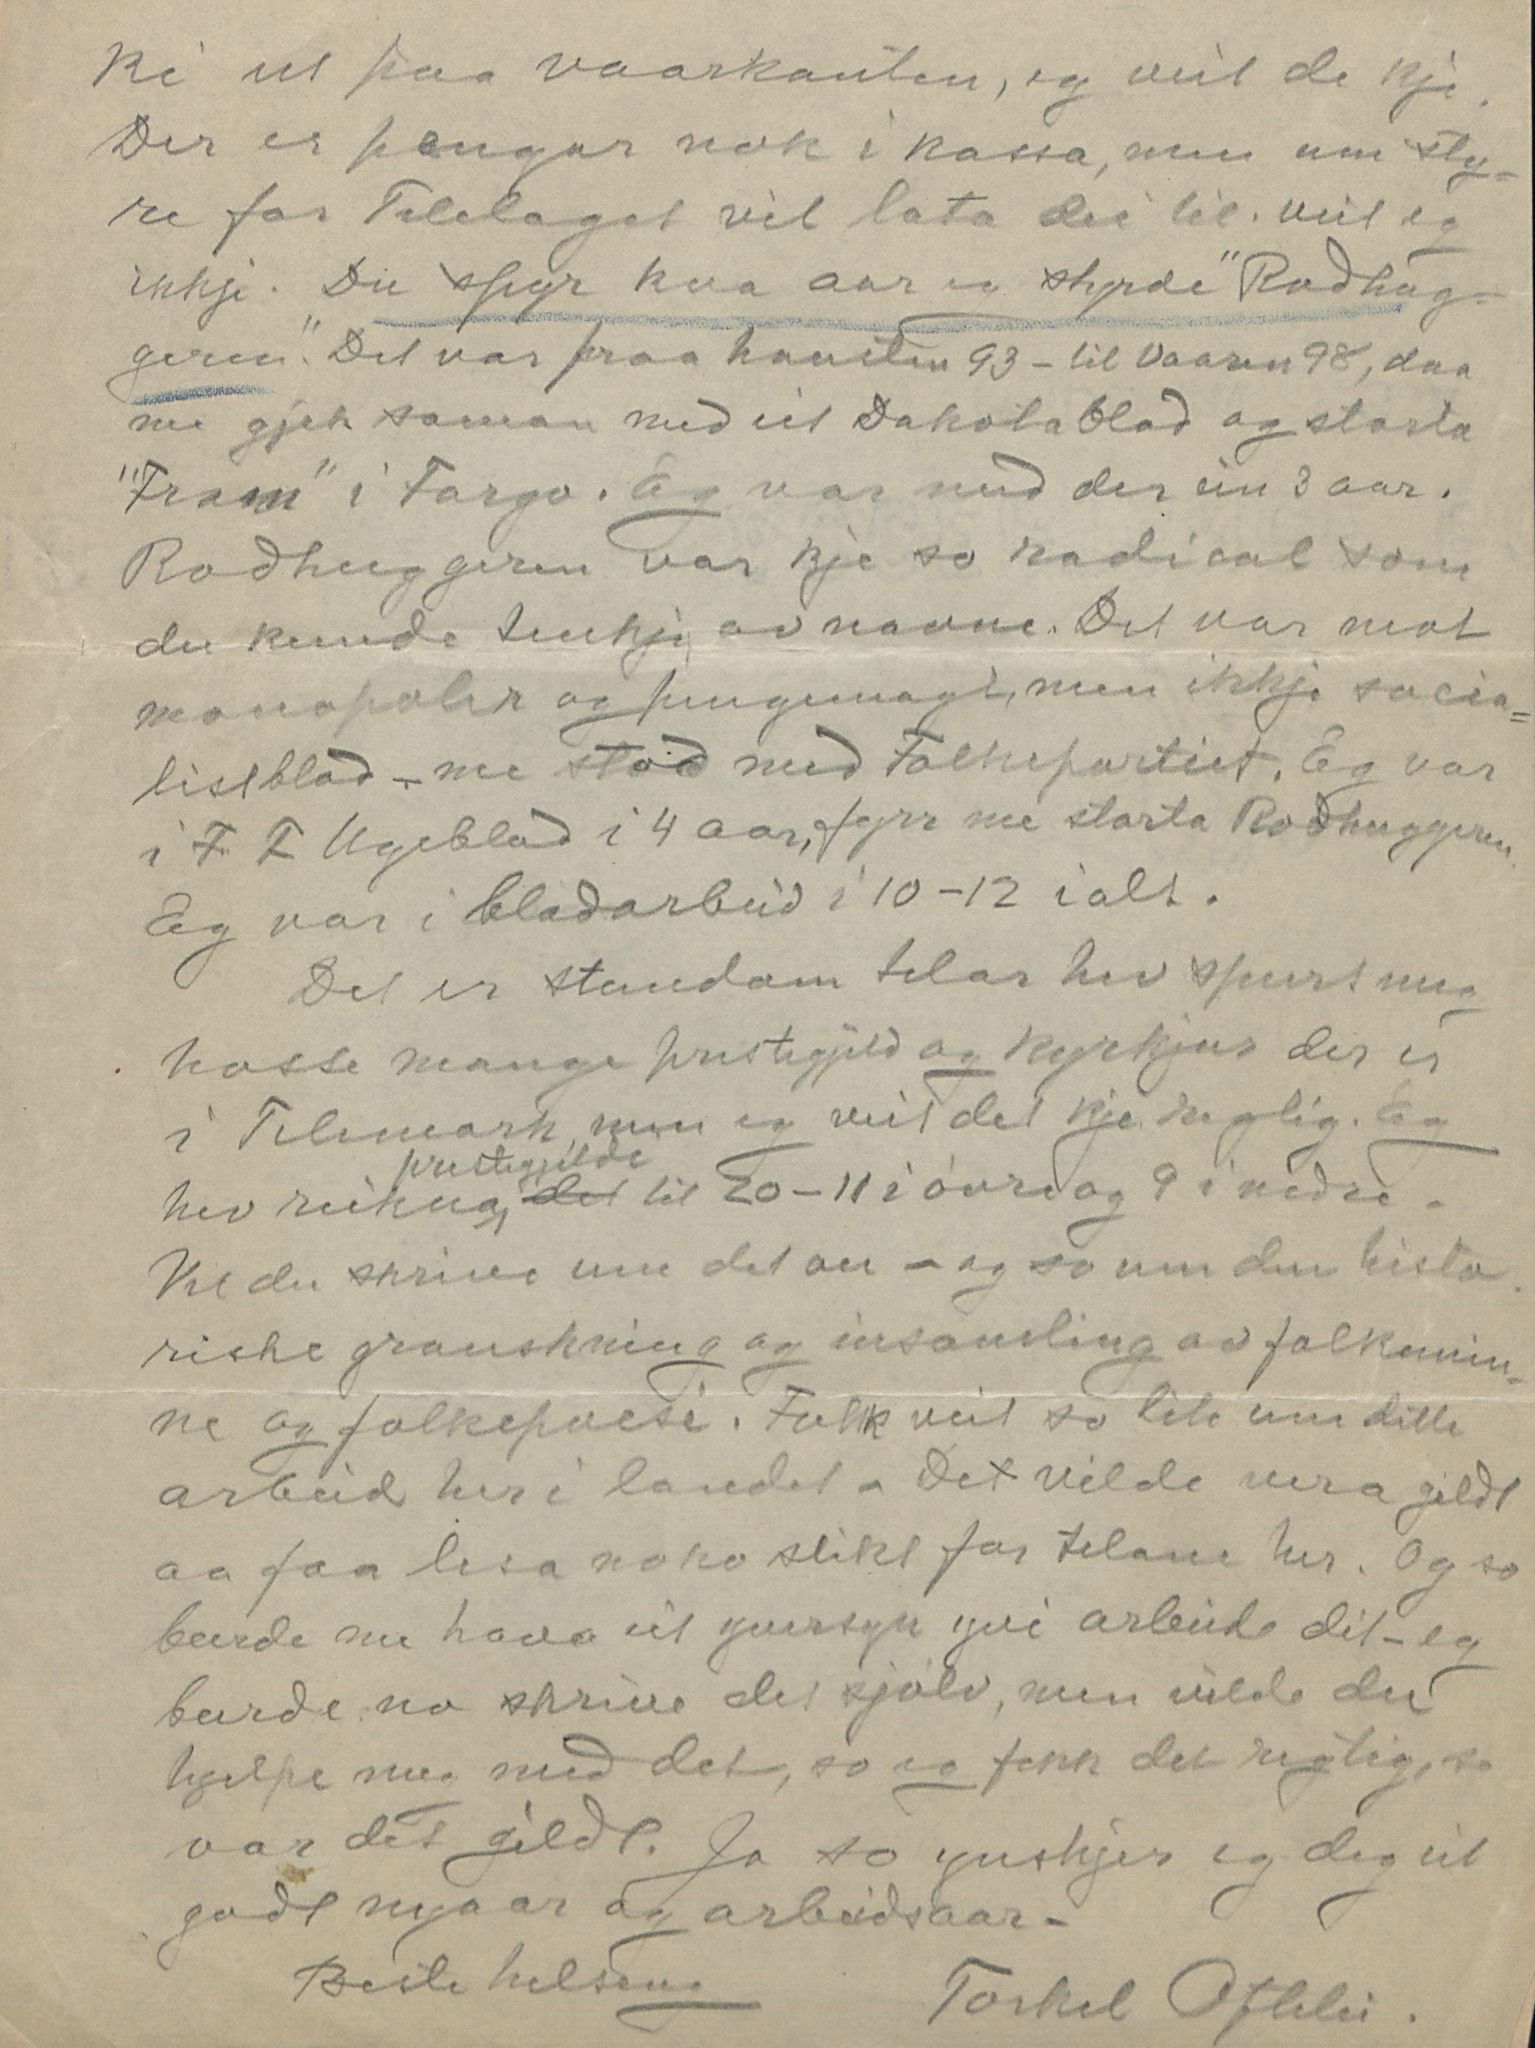 ke ut paa vaarkanten, eg veit de kje.
Der er pengar nok i kassa, men um sty-
re for Telelaget vil lata dei til. veit eg
ikkje. Du spyr kva aar eg styrde "Rodhug-
geren". Det var fraa hausten 93 - til Vaaren 98, daa
me gjek saman med eit Dakotablad og starta
"Fram" i Fargo. Eg var med der ein 3 aar.
Rodhuggeren var kje so radical som
du kunde tenkje av navne. Det var mot
monopoler og pengemagt, men ikkje socia=
listblad - me stod med Folkepartiet. Eg var
i F F Ugeblad i 4 aar, fyrr me starta Rodhuggeren.
Eg var i bladarbeid i 10-12 i alt.
Det er stundom telar hev spurt meg
hosse mange prestegjeld og kyrkjur der er
i Telemark, men eg veit det kje regtig. Eg
prestegjelde
hev reikna, det til 20 - 11 i övre og 9 i nedre.
Vil du skrive um det au - og so um den histo
riske granskning og insamling av folkemin-
ne og folkepoesi. Folk veit so lite um dette
arbeid her i landet - Det vilde vera gildt
aa faa lesa noko slikt for telane her. Og so
burde me hava eit yversyn yvi arbeide dit - eg
burde no skrive det sjölv, men vilde du
hjelpe meg med det, so eg fekk det regtig, so
var det gildt. Ja so ynskjer eg deg eit
godt nyaar og arbeidsaar -
Beste helsing
Torkel Oftelie.